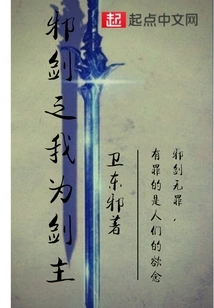 起 起点中文网
邪剑之我为剑主
卫东邪著
邪剑无罪，
有罪的是人们的欲念